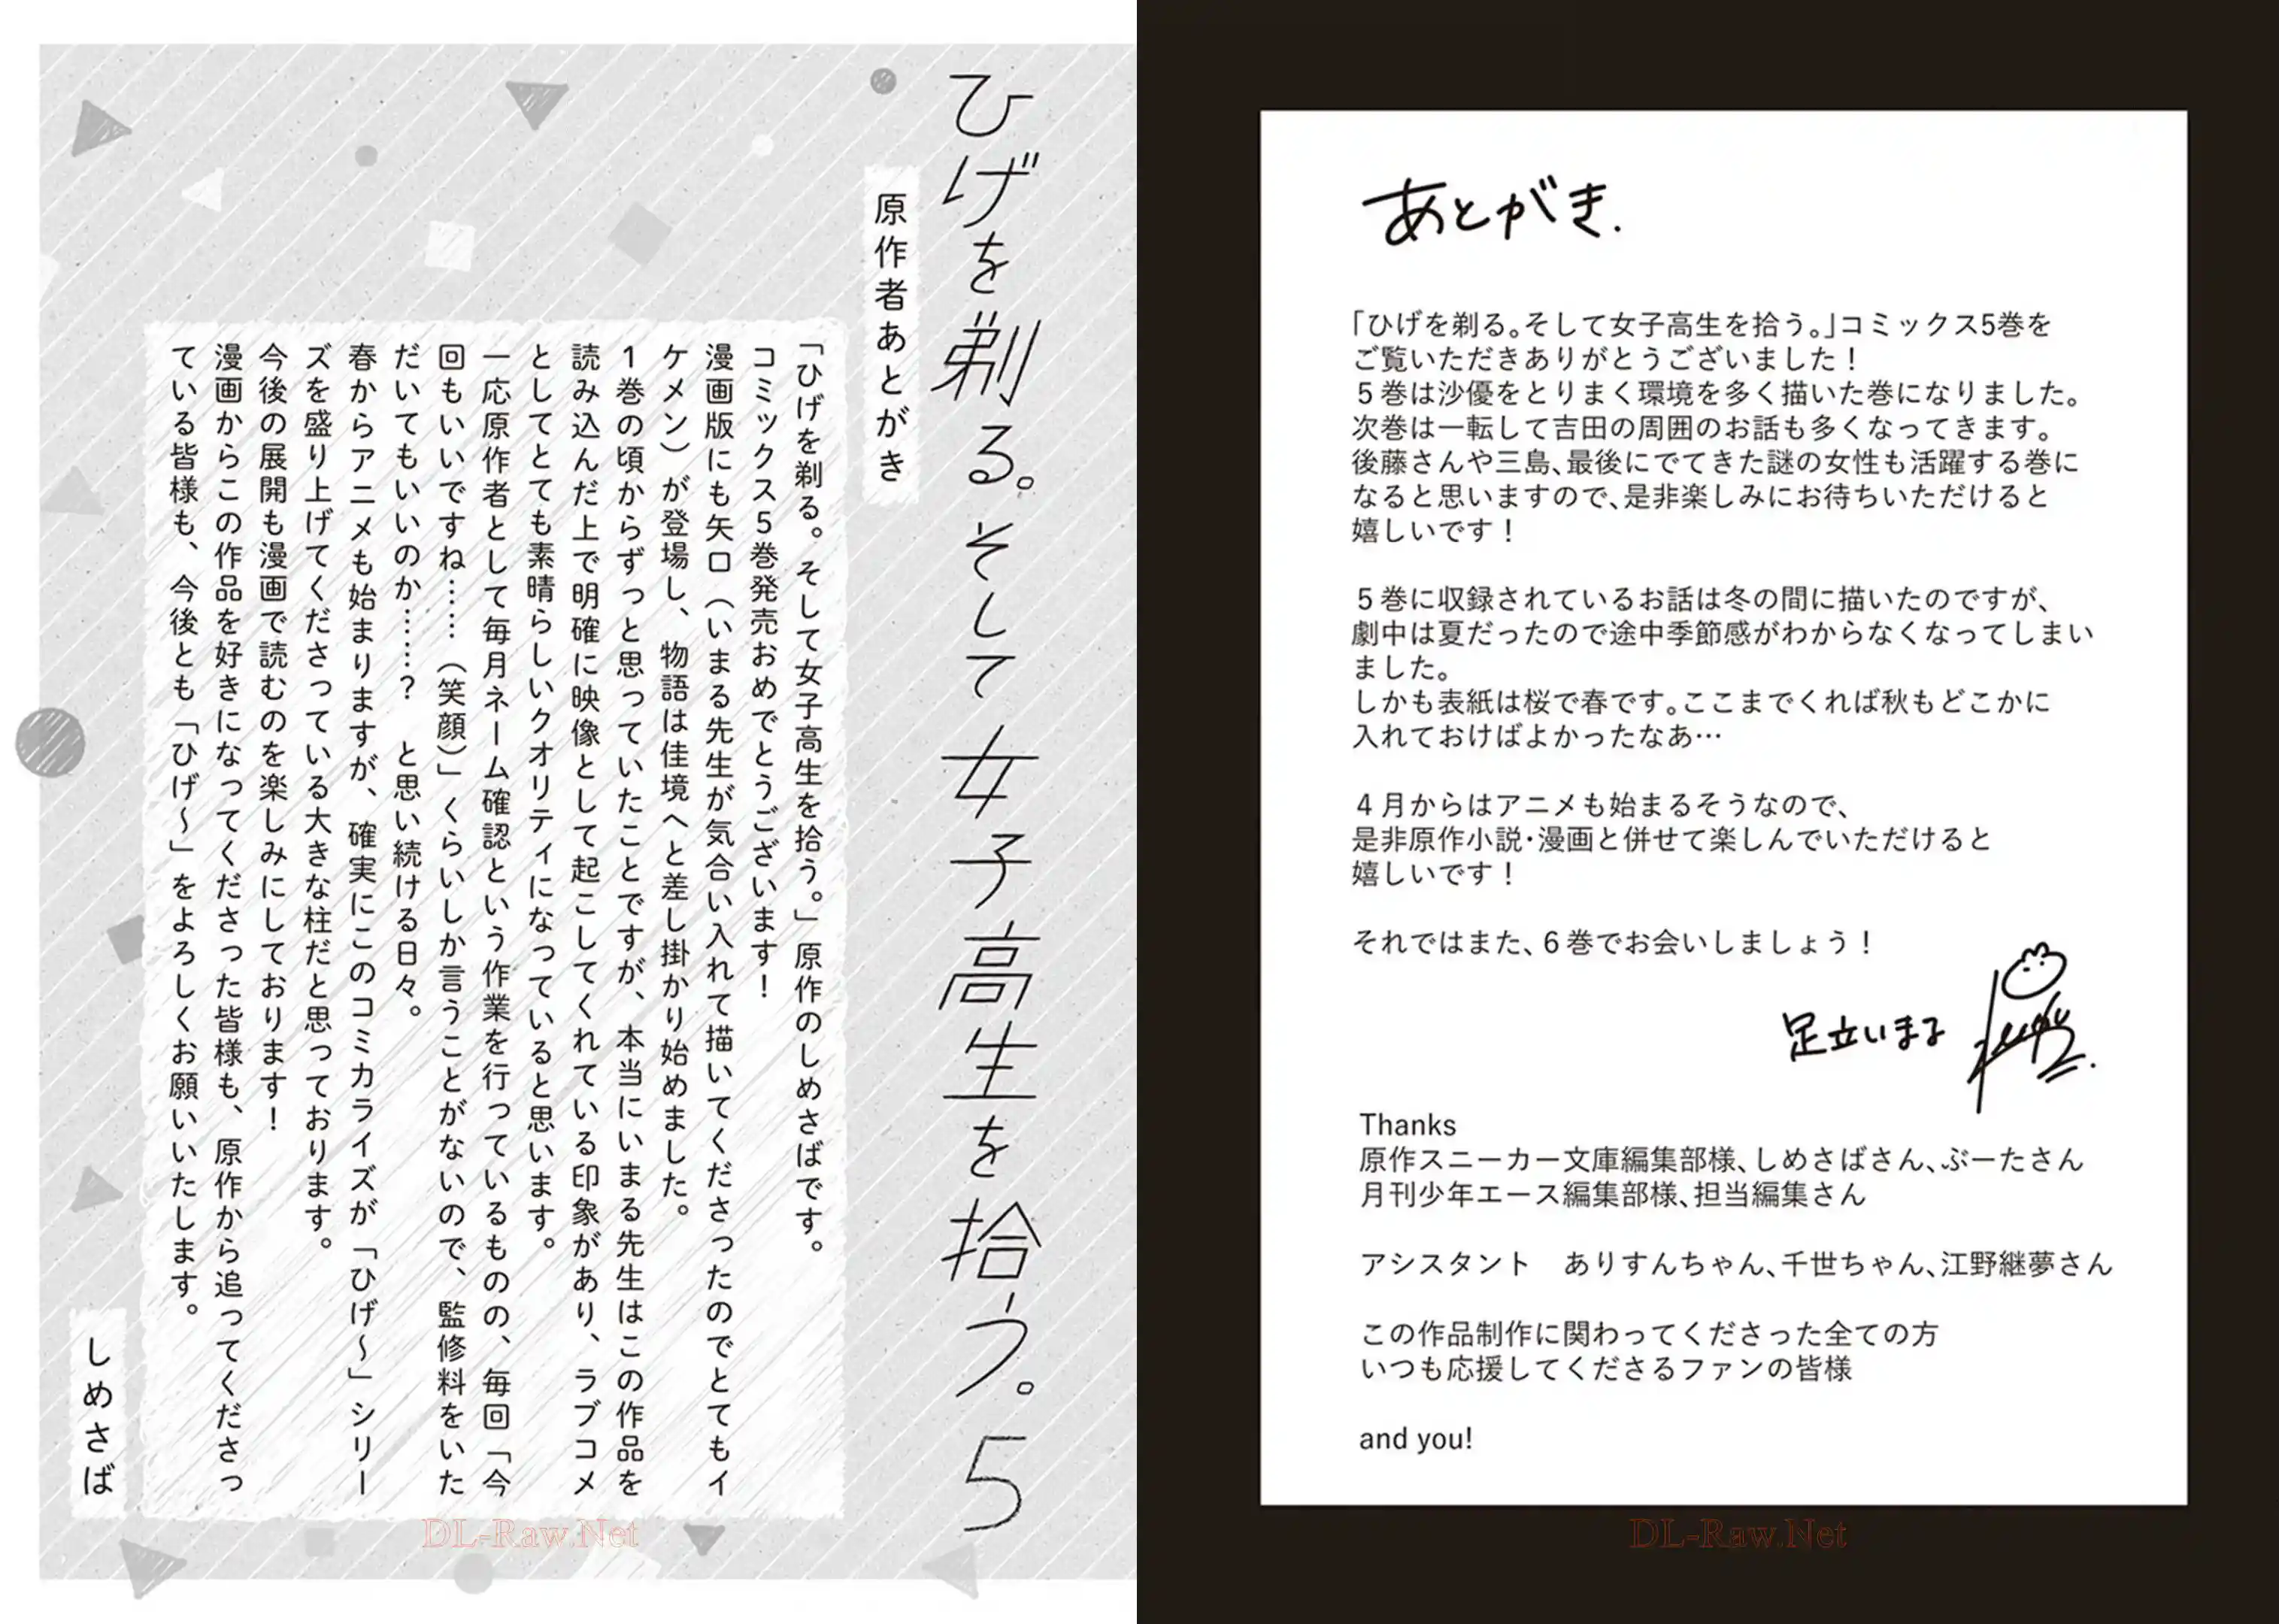 ひげを剃る。そして女子高生を拾う。5
原作者あとがき
「ひげを剃る。そして女子高生を拾う。」原作のしめさばです。
コミックス5巻発売おめでとうございます！
漫画版にも矢口（いまる先生が気合い入れて描いてくださったのでとてもイ
ケメン）が登場し、物語は佳境へと差し掛かり始めました。
1巻の頃からずっと思っていたことですが、本当にいまる先生はこの作品を
読み込んだ上で明確に映像として起こしてくれている印象があり、ラブコメ
としてとても素晴らしいクオリティになっていると思います。
一応原作者として毎月ネーム確認という作業を行っているものの、毎回「今
回もいいですね……（笑顔）」くらいしか言うことがないので、監修料をいた
だいてもいいのか……？　と思い続ける日々。
春からアニメも始まりますが、確実にこのコミカライズが「ひげ～」シリー
ズを盛り上げてくださっている大きな柱だと思っております。
今後の展開も漫画で読むのを楽しみにしております！
漫画からこの作品を好きになってくださった皆様も、原作から追ってくださっ
ている皆様も、今後とも「ひげ～」をよろしくお願いいたします。
しめさば
DL-Raw.Net
あとがき.
「ひげを剃る。そして女子高生を拾う。」コミックス5巻を
ご覧いただきありがとうございました！
5巻は沙優をとりまく環境を多く描いた巻になりました。
次巻は一転して吉田の周囲のお話も多くなってきます。
後藤さんや三島、最後にでてきた謎の女性も活躍する巻に
なると思いますので、是非楽しみにお待ちいただけると
嬉しいです！
5巻に収録されているお話は冬の間に描いたのですが、
劇中は夏だったので途中季節感がわからなくなってしまい
ました。
しかも表紙は桜で春です。ここまでくれば秋もどこかに
入れておけばよかったなあ…
4月からはアニメも始まるそうなので、
是非原作小説・漫画と併せて楽しんでいただけると
嬉しいです！
それではまた、6巻でお会いしましょう！
足立いまる
Thanks
原作スニーカー文庫編集部様、しめさばさん、ぶーたさん
月刊少年エース編集部様、担当編集さん
アシスタント　ありすんちゃん、千世ちゃん、江野継夢さん
この作品制作に関わってくださった全ての方
いつも応援してくださるファンの皆様
and you!
DL-Raw.Net